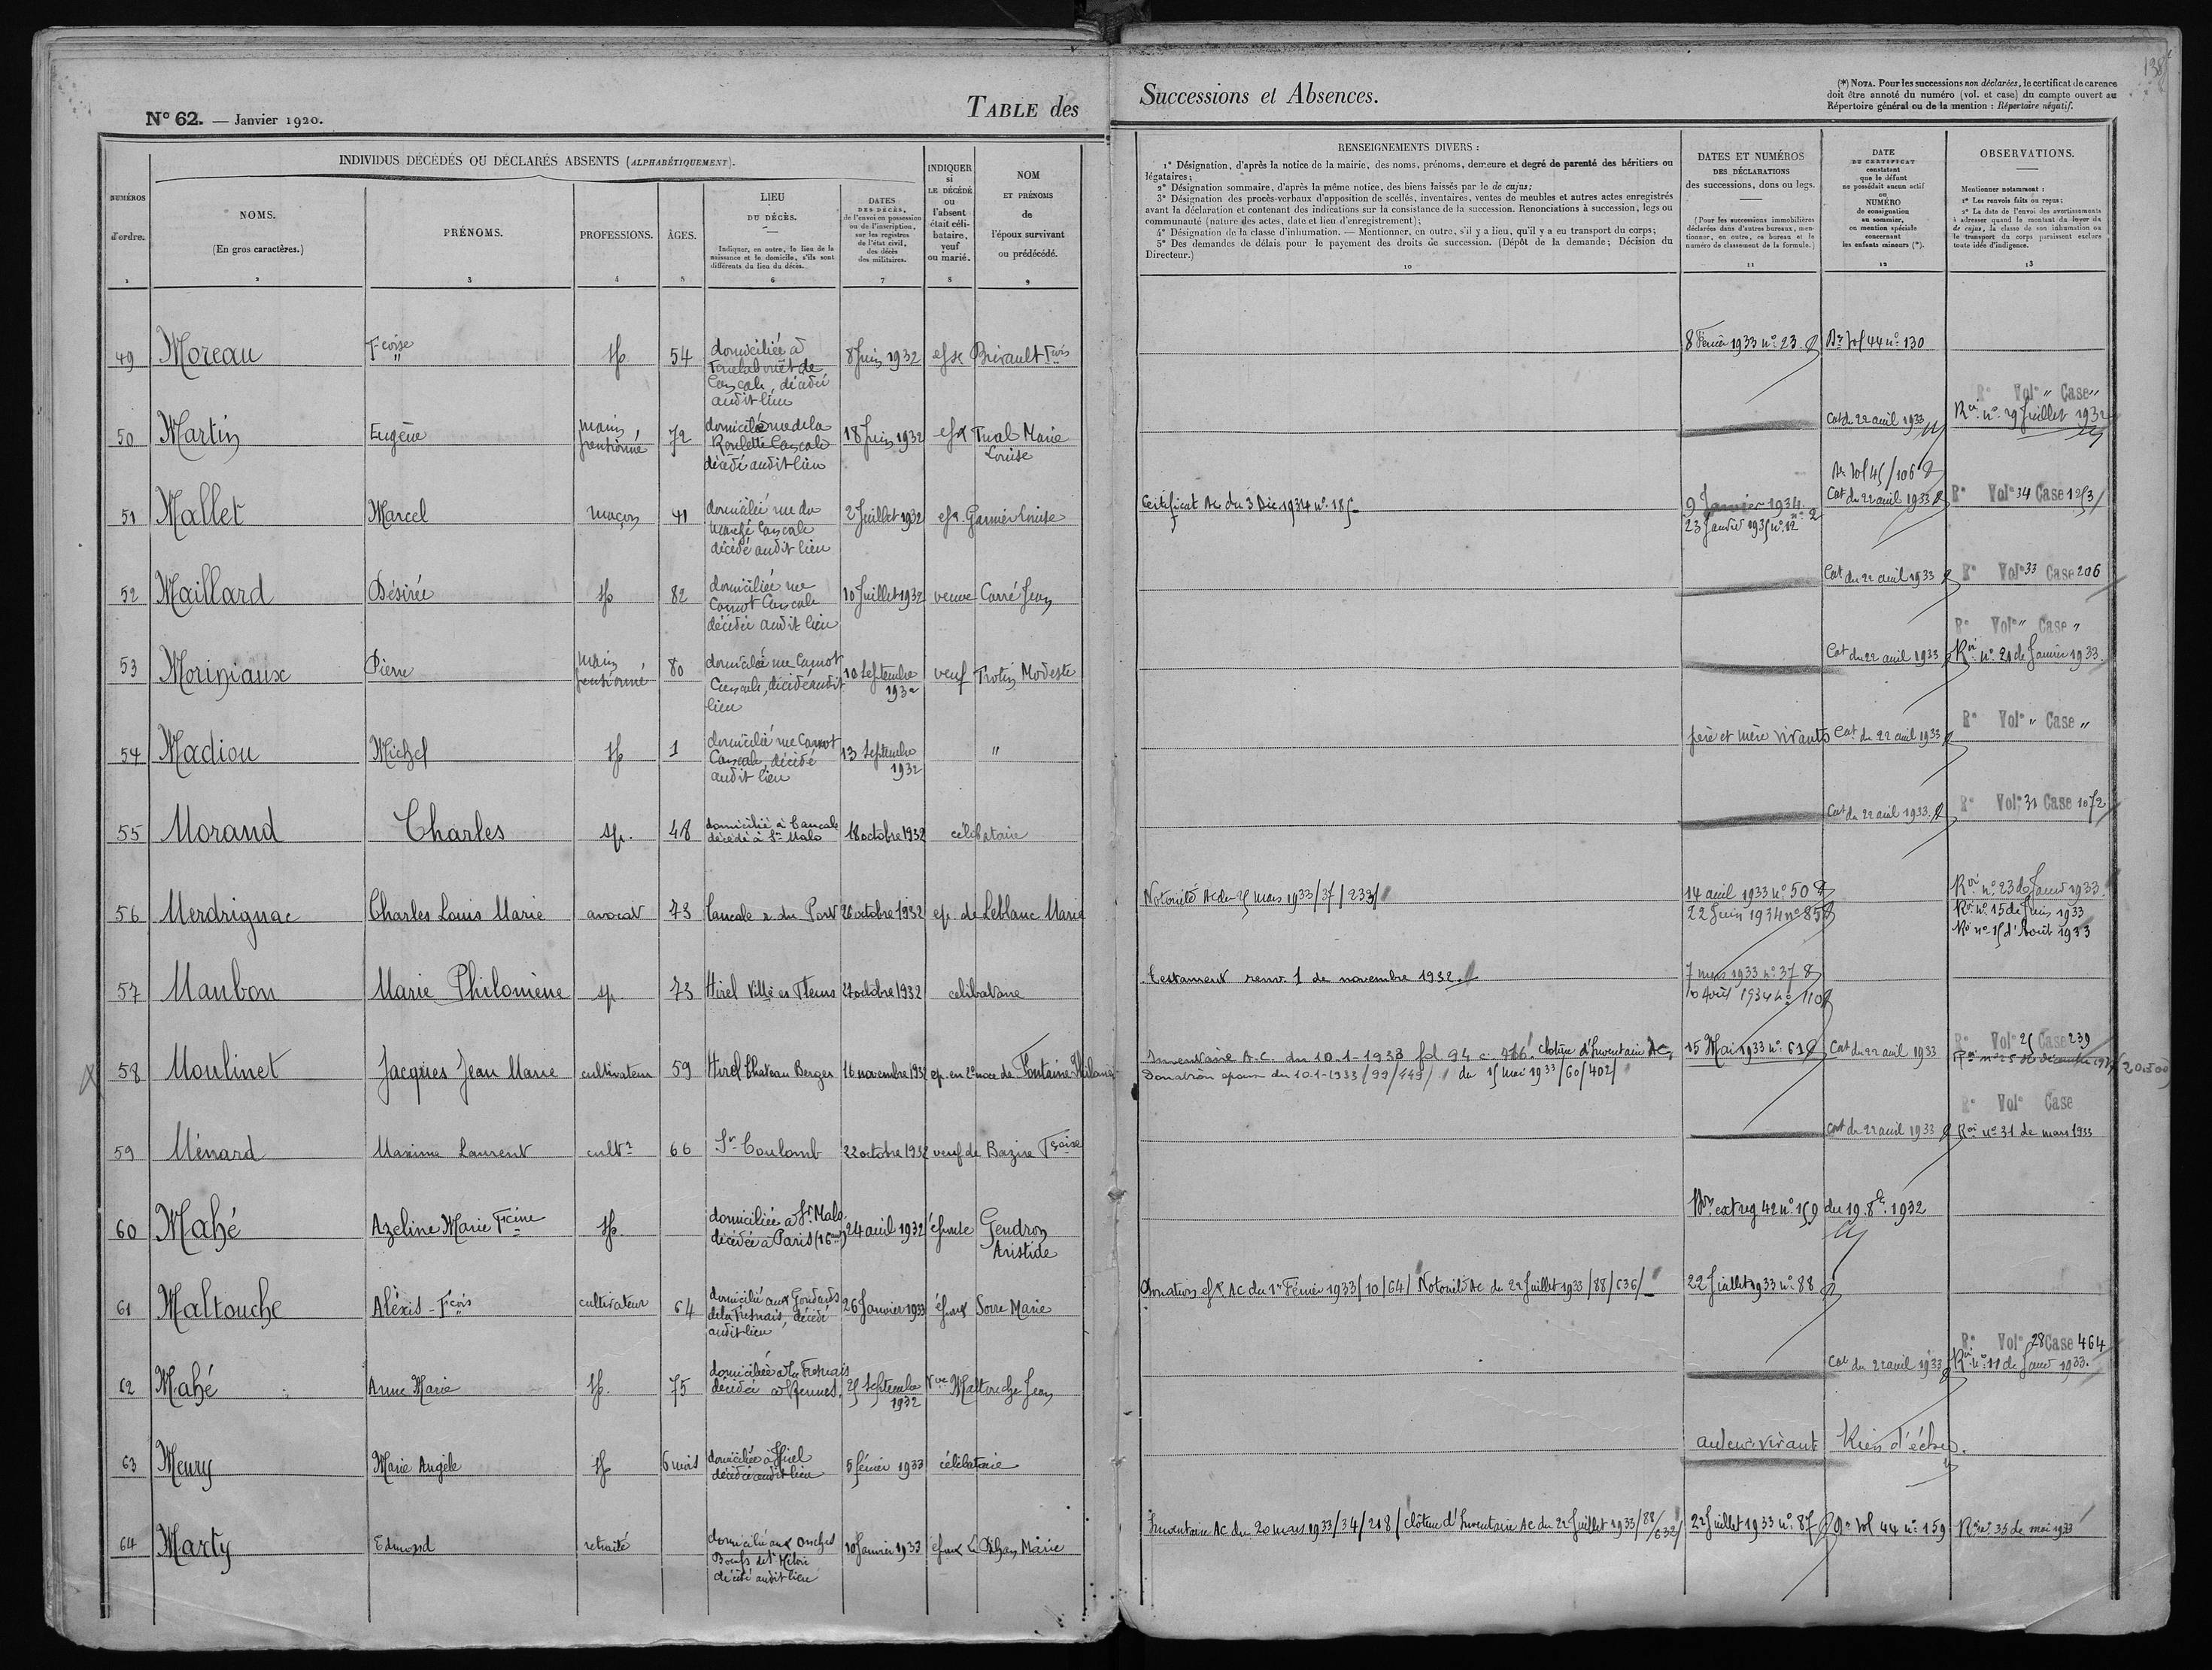 138
N° 62. — Janvier 1920.
TABLE des
Successions et Absences.
(*) NOTA. Pour les successions non déclarées, le certificat de carence
doit être annoté du numéro (vol. et case) du compte ouvert au
Répertoire général ou de la mention : Répertoire négatif.
NUMÉROS
d'ordre.
1
INDIVIDUS DÉCÉDÉS OU DÉCLARÉS ABSENTS (ALPHABÉTIQUEMENT).
NOMS.
(En gros caractères.)
2
PRÉNOMS.
3
PROFESSIONS.
4
ÂGES.
5
LIEU
DU DÉCÈS.
Indiquer, en outre, le lieu de la
naissance et le domicile, s'ils sont
différents du lieu du décès.
6
DATES
DES DÉCÈS,
de l'envoi en possession
ou de l'inscription,
sur les registres
de l'état civil,
des décès
des militaires.
7
INDIQUER
si
LE DÉCÉDÉ
ou
l'absent
était céli-
bataire,
veuf
ou marié.
8
NOM
ET PRÉNOMS
de
l'époux survivant
ou prédécédé.
9
RENSEIGNEMENTS DIVERS :
1° Désignation, d'après la notice de la mairie, des noms, prénoms, demeure et degré de parenté des héritiers ou
légataires;
2° Désignation sommaire, d'après la même notice, des biens laissés par le de cujus;
3° Désignation des procès-verbaux d'apposition de scellés, inventaires, ventes de meubles et autres actes enregistrés
avant la déclaration et contenant des indications sur la consistance de la succession. Renonciations à succession, legs ou
communauté (nature des actes, date et lieu d'enregistrement);
4° Désignation de la classe d'inhumation. — Mentionner, en outre, s'il y a lieu, qu'il y a eu transport du corps;
5° Des demandes de délais pour le payement des droits de succession. (Dépôt de la demande; Décision du
Directeur.)
10
DATES ET NUMÉROS
DES DÉCLARATIONS
des successions, dons ou legs.
(Pour les successions immobilières
déclarées dans d'autres bureaux, men-
tionner, en outre, ce bureau et le
numéro de classement de la formule.)
11
DATE
DU CERTIFICAT
constatant
que le défunt
ne possédait aucun actif
ou
NUMÉRO
de consignation
au sommier,
ou mention spéciale
concernant
les enfants mineurs (*).
12
OBSERVATIONS.
Mentionner notamment :
1° Les renvois faits ou reçus;
2° La date de l'envoi des avertissements
à adresser quand le montant du loyer du
de cujus, la classe de son inhumation ou
le transport du corps paraissent exclure
toute idée d'indigence.
13
49 Moreau Fçoise sp 54 domiciliée à
de
Cancale, décédée
audit lieu
8 Juin 1932 épse Brivault Fçois
8 Février 1933 n° 23 Vol 44 n° 130
50 Martin Eugène marin
pensionné 72 domicilié rue de la
Roulette Cancale
décédé audit lieu
18 Juin 1932 épx Tual Marie
Louise
Cat du 22 avril 1933
R° Vol° " Case "
Roi n° 29 Juillet 1932
51 Mallet Marcel maçon 41 domicilié rue du
Marché Cancale
décédé audit lieu
2 Juillet 1932 épx Garnier Louise
Certificat Ac du 3 Déc 1934 n° 185
9 Janvier 1934 n° 2
23 Janvier 1935 n° 12
Vol 45/106
Cat du 22 avril 1933
R° Vol° 34 Case 1253
52 Maillard Désirée sp 82 domiciliée rue
Carnot Cancale
décédée audit lieu
10 Juillet 1932 veuve Carré Jean
Cat du 22 avril 1933
R° Vol° 33 Case 206
53 Moriniaux Pierre marin
pensionné 80 domicilié rue Carnot
Cancale, décédé audit
lieu
10 Septembre
1932 veuf Trotin Modeste
Cat du 22 avril 1933
R° Vol° " Case "
Roi n° 21 de Janvier 1933.
54 Madiou Michel sp 1 domicilié rue Carnot
Cancale, décédé
audit lieu
13 Septembre
1932 "
père et mère vivants Cat. du 22 avril 1933
R° Vol° " Case "
55 Morand Charles sp. 48 domicilié à Cancale
décédé à St Malo
18 octobre 1932 célibataire
Cat du 22 avril 1933
R° Vol° 31 Case 1072
56 Merdrignac Charles Louis Marie avocat 73 Cancale r. du Port 26 octobre 1932 ép. de Leblanc Marie
Notoriété Ac du 25 mars 1933/37/233/
14 avril 1933 n° 50
22 Juin 1934 n° 85
Roi n° 23 de Janv 1933
Roi n° 15 de Juin 1933
Roi n° 15 d'Août 1933
57 Maubon Marie Philomène sp. 73 Hirel Ville es Fleurs 27 octobre 1932 célibataire
Testament renv. 1 de novembre 1932.
7 mars 1933 n° 37
10 Août 1934 n° 110
58 Moulinet Jacques Jean Marie cultivateur 59 Hirel Chateau Berger 16 novembre 1932 ép. en 2e noce de Fontaine
Inventaire A.C. du 10-1-1933 fol 94 c. 416. Clôture d'Inventaire Ac
Donation époux du 10-1-1933/99/449/ du 15 mai 1933/60/402/
15 Mai 1933 n° 61 Cat du 22 avril 1933
R° Vol° 26 Case 239
(20.500)
59 Ménard Maxime Laurent cultr 66 St Coulomb 22 octobre 1932 veuf de Bazire Fçoise
Cat du 22 avril 1933
R° Vol° Case
Roi n° 31 de mars 1933
60 Mahé Azeline Marie Fcine sp. domiciliée à St Malo
décédée à Paris (16ème) 24 avril 1932 épouse Gendron
Aristide
ext reg 42 n° 159 du 19. 8e. 1932
61 Maltouche Aléxis - Fçois cultivateur 64 domicilié aux
de la Fresnais, décédé
audit lieu
26 Janvier 1933 époux Sorre Marie
Donation épx. AC du 1er Février 1933/10/64/ Notoriété Ac du 22 Juillet 1933/88/636/
22 Juillet 1933 n° 88
62 Mahé Anne Marie sp. 75 domiciliée à La Fresnais
décédée à Rennes 25 Septembre
1932 Vve Maltouche Jean
Cat du 22 avril 1933
R° Vol° 28 Case 464
Roi n° 11 de Janv 1933.
63 Meury Marie Angèle sp 6 mois domiciliée à Hirel
décédée audit lieu 5 février 1933 célibataire
auteurs vivant Rien d'échu.
64 Marty Edmond retraité domicilié aux
Boeufs de St Méloir
décédé audit lieu
10 Janvier 1933 époux Marie
Inventaire Ac du 20 mars 1933/34/218/ clôture d'Inventaire Ac du 22 Juillet 1933/88/632/
22 Juillet 1933 n° 87 vol 44 n° 159 n° 35 de mai 1933